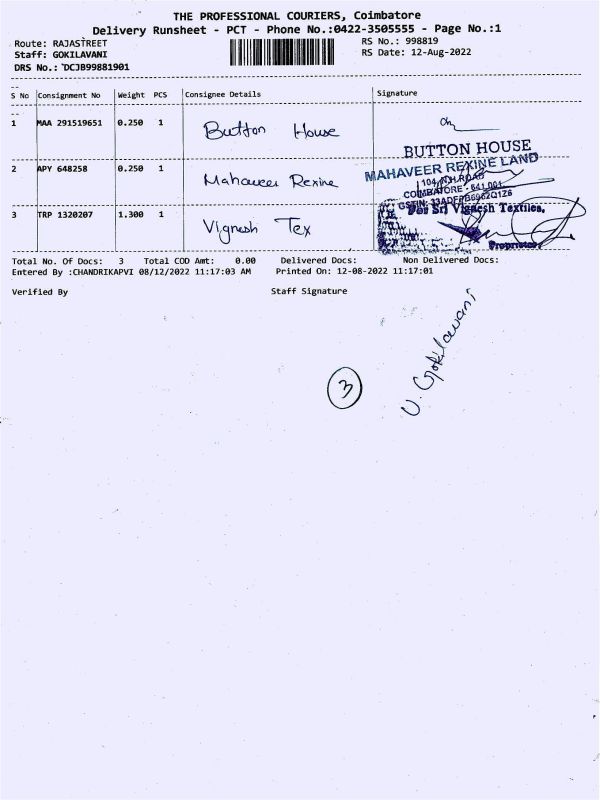 THE PROFESSIONAL COURIERS, Coimbatore
Delivery Runsheet - PCT - Phone No.:0422-3505555 - Page No.:1
Route: RAJASTREET RS No.: 998819
Staff: GOKILAVANI RS Date: 12-Aug-2022
DRS No.: DCJB99881901
S No Consignment No Weight PCS Consignee Details Signature
1 MAA 291519651 0.250 1 Button House
BUTTON HOUSE
2 APY 648258 0.250 1 Mahaveer Rexine
MAHAVEER REXINE LAND
104, N.H.ROAD
COIMBATORE - 641 001
3 TRP 1320207 1.300 1 Vignesh Tex
For Sri Vignesh Textiles,
Proprietor
Total No. Of Docs: 3 Total COD Amt: 0.00 Delivered Docs: Non Delivered Docs:
Entered By :CHANDRIKAPVI 08/12/2022 11:17:03 AM Printed On: 12-08-2022 11:17:01
Verified By Staff Signature
U. Gokilavani
3